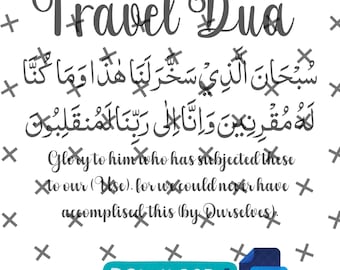 Travel Dua
سُبْحَانَ الَّذِيْ سَخَّرَ لَنَا هٰذَا وَمَا كُنَّا
لَهُ مُقْرِنِيْنَ وَاِنَّا اِلٰى رَبِّنَا لَمُنْقَلِبُوْنَ
Glory to him who has subjected these
to our (Use). for we could never have
accomplised this (by Ourselves).